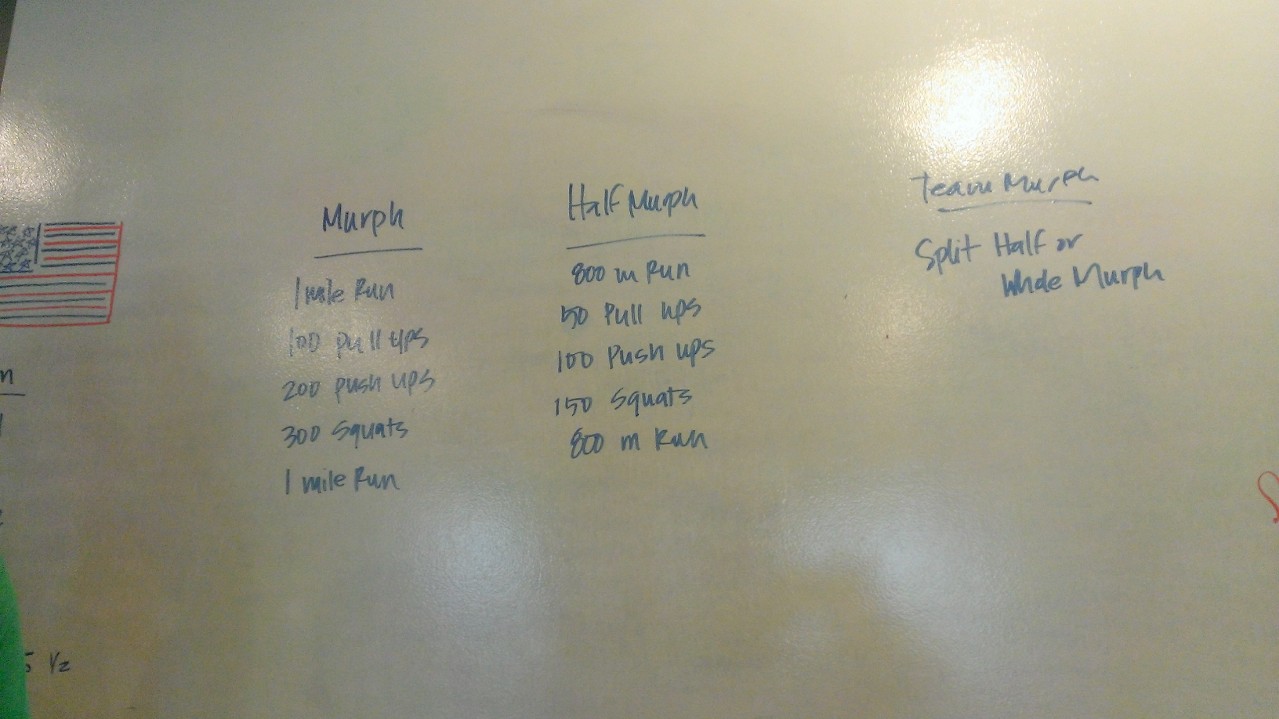 Murph
1 mile Run
100 pull ups
200 push ups
300 Squats
1 mile Run
Half Murph
800 m Run
50 Pull ups
100 Push ups
150 Squats
800 m Run
Team Murph
Split Half or
Whole Murph
5 1/2